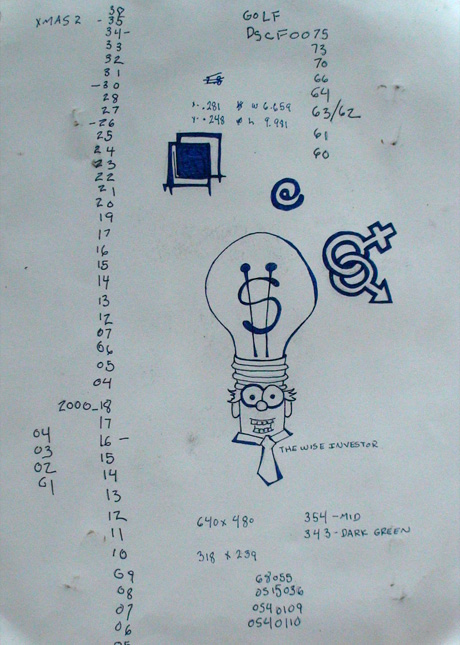 XMAS 2
38
-35
34-
33
32
31
-30
28
27
-26
25
24
23
22
21
20
19
17
16
15
14
13
12
07
06
05
04
2000_18
17
16 -
15
14
13
12
11
10
09
08
07
06
05
04
03
02
01
GOLF
DSCF0075
73
70
66
64
63/62
61
60
X-.281 W 6.659
Y-.248 h 9.981
@
S
THE WISE INVESTOR
640 x 480
318 x 239
354 - MID
343 - DARK GREEN
68055
0515036
0540109
0540110